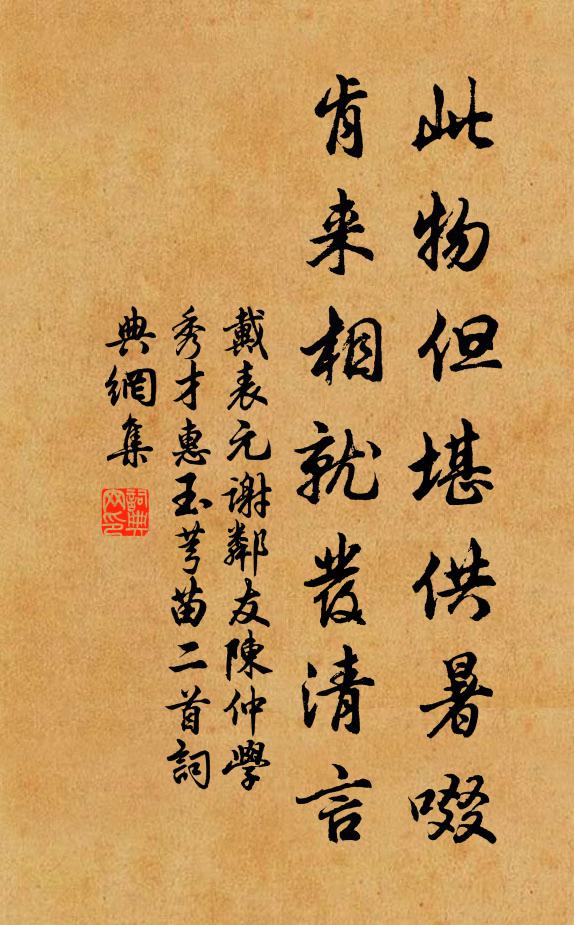 此物但堪供暑啜
肯来相就發清言
戴表元謝鄰友陳仲學
秀才惠玉芎苗二首詞
典網集
詞典
网印